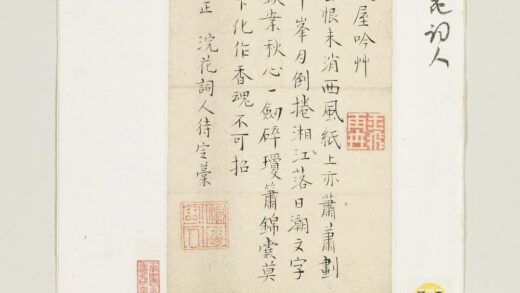 花詞人
屋吟艸
恨未消西風紙上亦蕭蕭劃
峯月倒捲湘江落日潮文字
業秋心一劒碎瓊簫錦囊莫
化作香魂不可招
正 浣花詞人待定藁